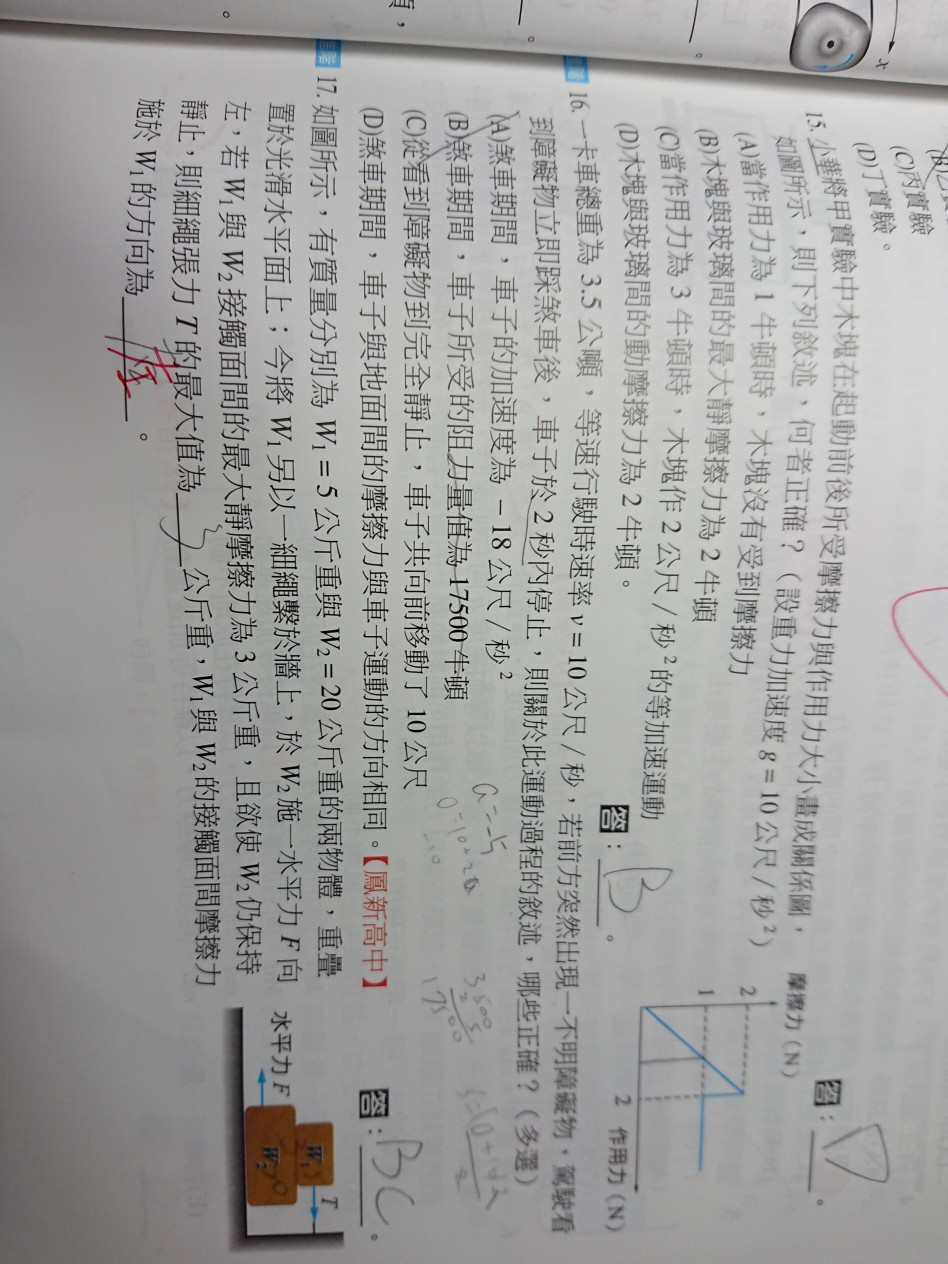 (C)丙實驗
(D)丁實驗。
x
答：D。
15. 小華將甲實驗中木塊在起動前後所受摩擦力與作用力大小畫成關係圖，
如圖所示，則下列敘述，何者正確？（設重力加速度 g = 10 公尺／秒²）
(A)當作用力為 1 牛頓時，木塊沒有受到摩擦力
(B)木塊與玻璃間的最大靜摩擦力為 2 牛頓
(C)當作用力為 3 牛頓時，木塊作 2 公尺／秒² 的等加速運動
(D)木塊與玻璃間的動摩擦力為 2 牛頓。
答：B。
摩擦力（N）
2
1
2 作用力（N）
16. 一卡車總重為 3.5 公噸，等速行駛時速率 v = 10 公尺／秒，若前方突然出現一不明障礙物，駕駛看
到障礙物立即踩煞車後，車子於 2 秒內停止，則關於此運動過程的敘述，哪些正確？（多選）
(A)煞車期間，車子的加速度為 − 18 公尺／秒²
(B)煞車期間，車子所受的阻力量值為 17500 牛頓
(C)從看到障礙物到完全靜止，車子共向前移動了 10 公尺
(D)煞車期間，車子與地面間的摩擦力與車子運動的方向相同。【鳳新高中】
a=-5
0=10+2a
3500
5
17500
答：BC。
17. 如圖所示，有質量分別為 W₁ = 5 公斤重與 W₂ = 20 公斤重的兩物體，重疊
置於光滑水平面上；今將 W₁ 另以一細繩繫於牆上，於 W₂ 施一水平力 F 向
左，若 W₁ 與 W₂ 接觸面間的最大靜摩擦力為 3 公斤重，且欲使 W₂ 仍保持
靜止，則細繩張力 T 的最大值為 3 公斤重，W₁ 與 W₂ 的接觸面間摩擦力
施於 W₁ 的方向為 左 。
水平力 F
W₁
T
W₂